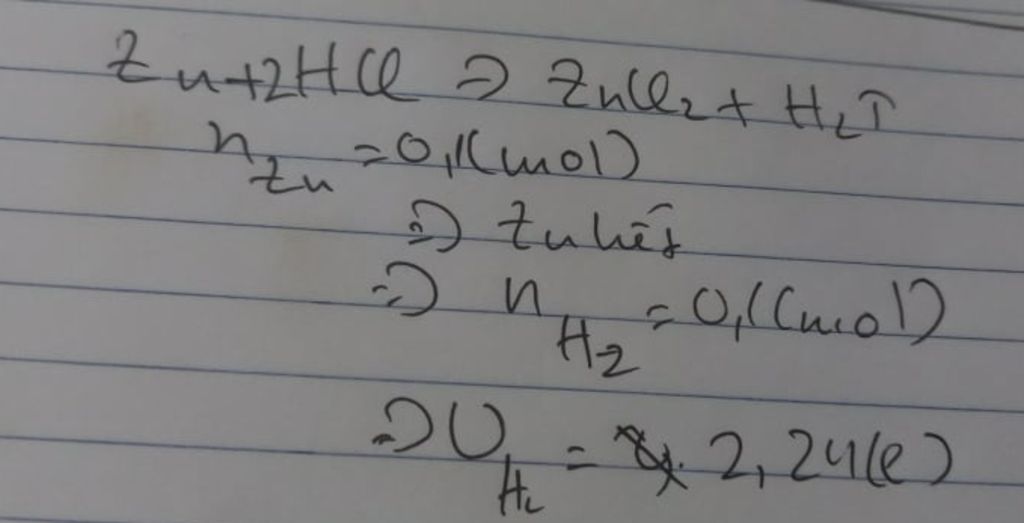 Zn+2HCl => ZnCl₂ + H₂↑
n_Zn = 0,1(mol)
=> Zn hết
=> n_H₂ = 0,1(mol)
=> V_H₂ = 2,24(l)